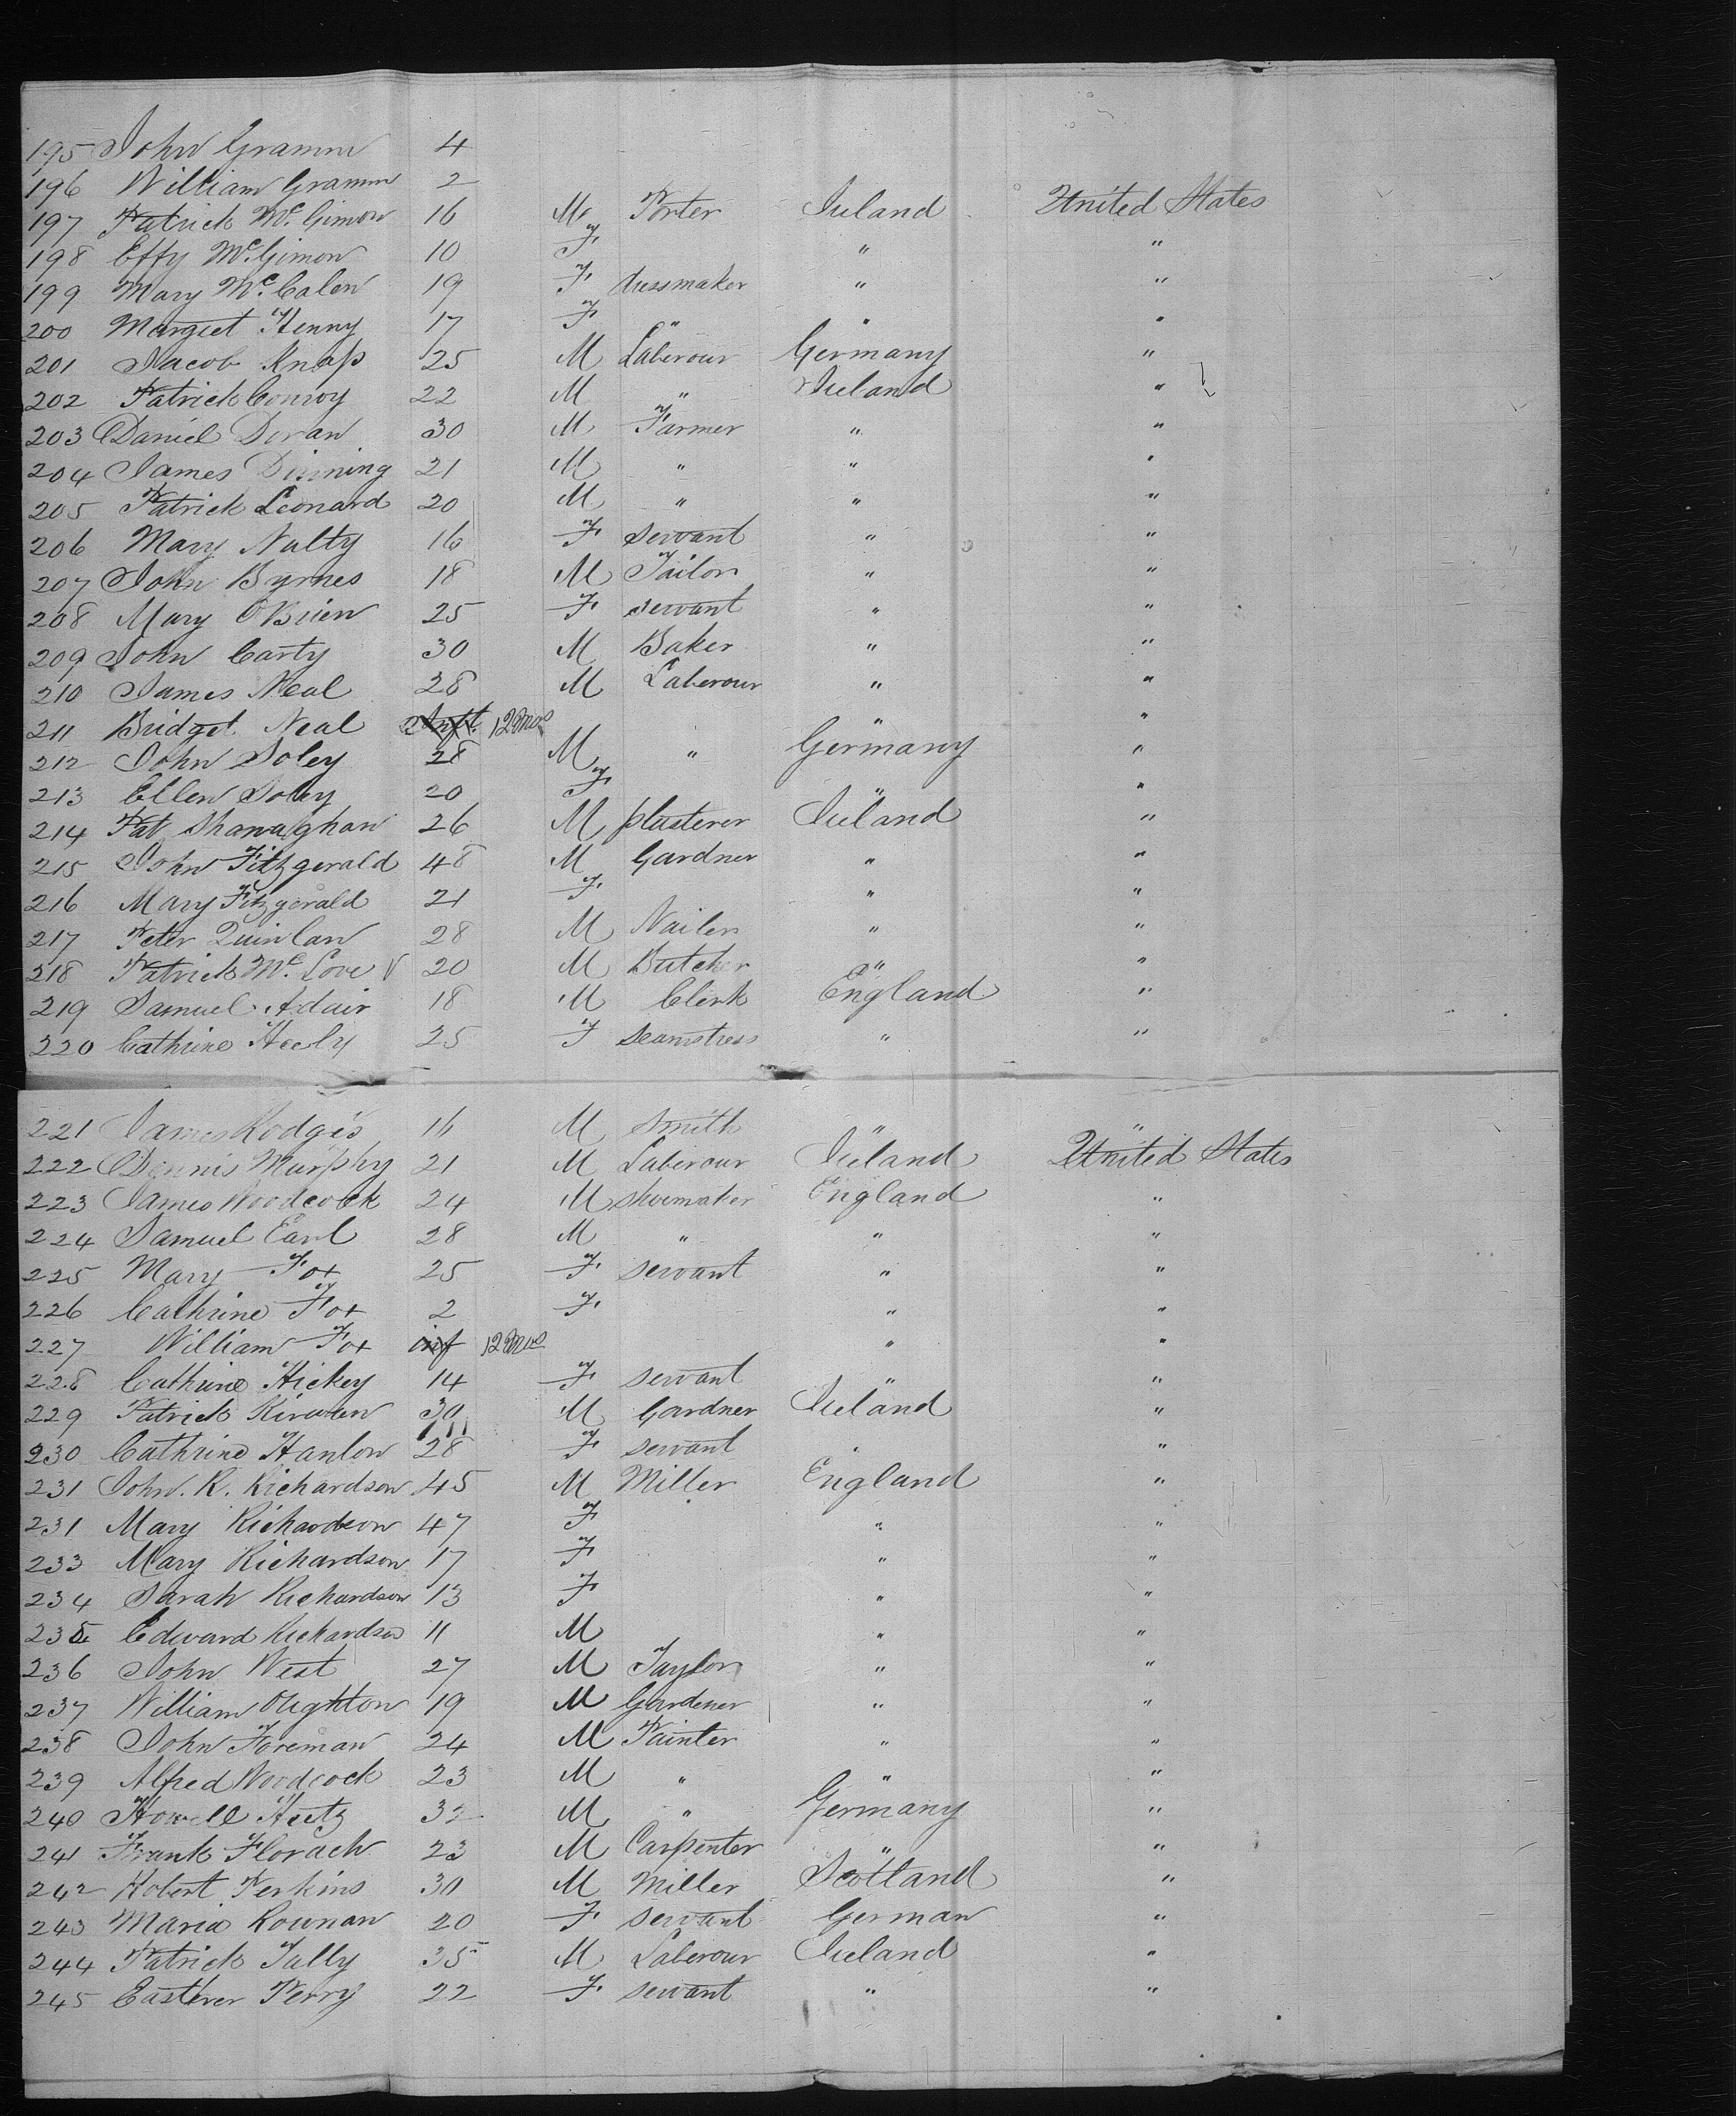 195 John Gramm 4
196 William Gramm 2
197 Patrick Mc. Gimon 16 M Porter Ireland United States
198 Effy Mc. Gimon 10 F " "
199 Mary Mc. Calen 19 F dressmaker " "
200 Margret Kenny 17 F " " "
201 Jacob Knap 25 M Laberour Germany "
202 Patrick Conroy 22 M " Ireland "
203 Daniel Doran 30 M Farmer " "
204 James Dinning 21 M " " "
205 Patrick Leonard 20 M " " "
206 Mary Nulty 16 F servant " "
207 John Byrnes 18 M Tailor " "
208 Mary OBrien 25 F servant " "
209 John Carty 30 M Baker " "
210 James Neal 28 M Laberour " "
211 Bridget Neal 12 Mos " "
212 John Soley 28 M " Germany "
213 Ellen Soley 20 F " "
214 Pat Shanaghan 26 M plasterer Ireland "
215 John Fitzgerald 48 M Gardner " "
216 Mary Fitzgerald 21 F " "
217 Peter Quinlan 28 M Nailer " "
218 Patrick Mc. Love 20 M Butcher " "
219 Samuel Adair 18 M Clerk England "
220 Cathrine Heely 25 F seamstress " "
221 James Rodgis 16 M Smith " "
222 Dennis Murphy 21 M Laberour Ireland United States
223 James Woodcock 24 M shoemaker England "
224 Samuel Earl 28 M " " "
225 Mary Fox 25 F servant " "
226 Cathrine Fox 2 F " "
227 William Fox inf 12 Mos " "
228 Cathrine Hickey 14 F servant " "
229 Patrick Kirwan 30 M Gardner Ireland "
230 Cathrine Hanlon 28 F servant " "
231 John. R. Richardson 45 M Miller England "
231 Mary Richardson 47 F " "
233 Mary Richardson 17 F " "
234 Sarah Richardson 13 F " "
235 Edward Richardson 11 M " "
236 John West 27 M Taylor " "
237 William Oughton 19 M Gardener " "
238 John Foreman 24 M Painter " "
239 Alfred Woodcock 23 M " " "
240 Howell 32 M " Germany "
241 Frank Florach 23 M Carpenter " "
242 Robert Perkins 30 M Miller Scotland "
243 Maria Rownan 20 F servant German "
244 Patrick Tully 35 M Laberour Ireland "
245 Easterer Perry 22 F servant " "